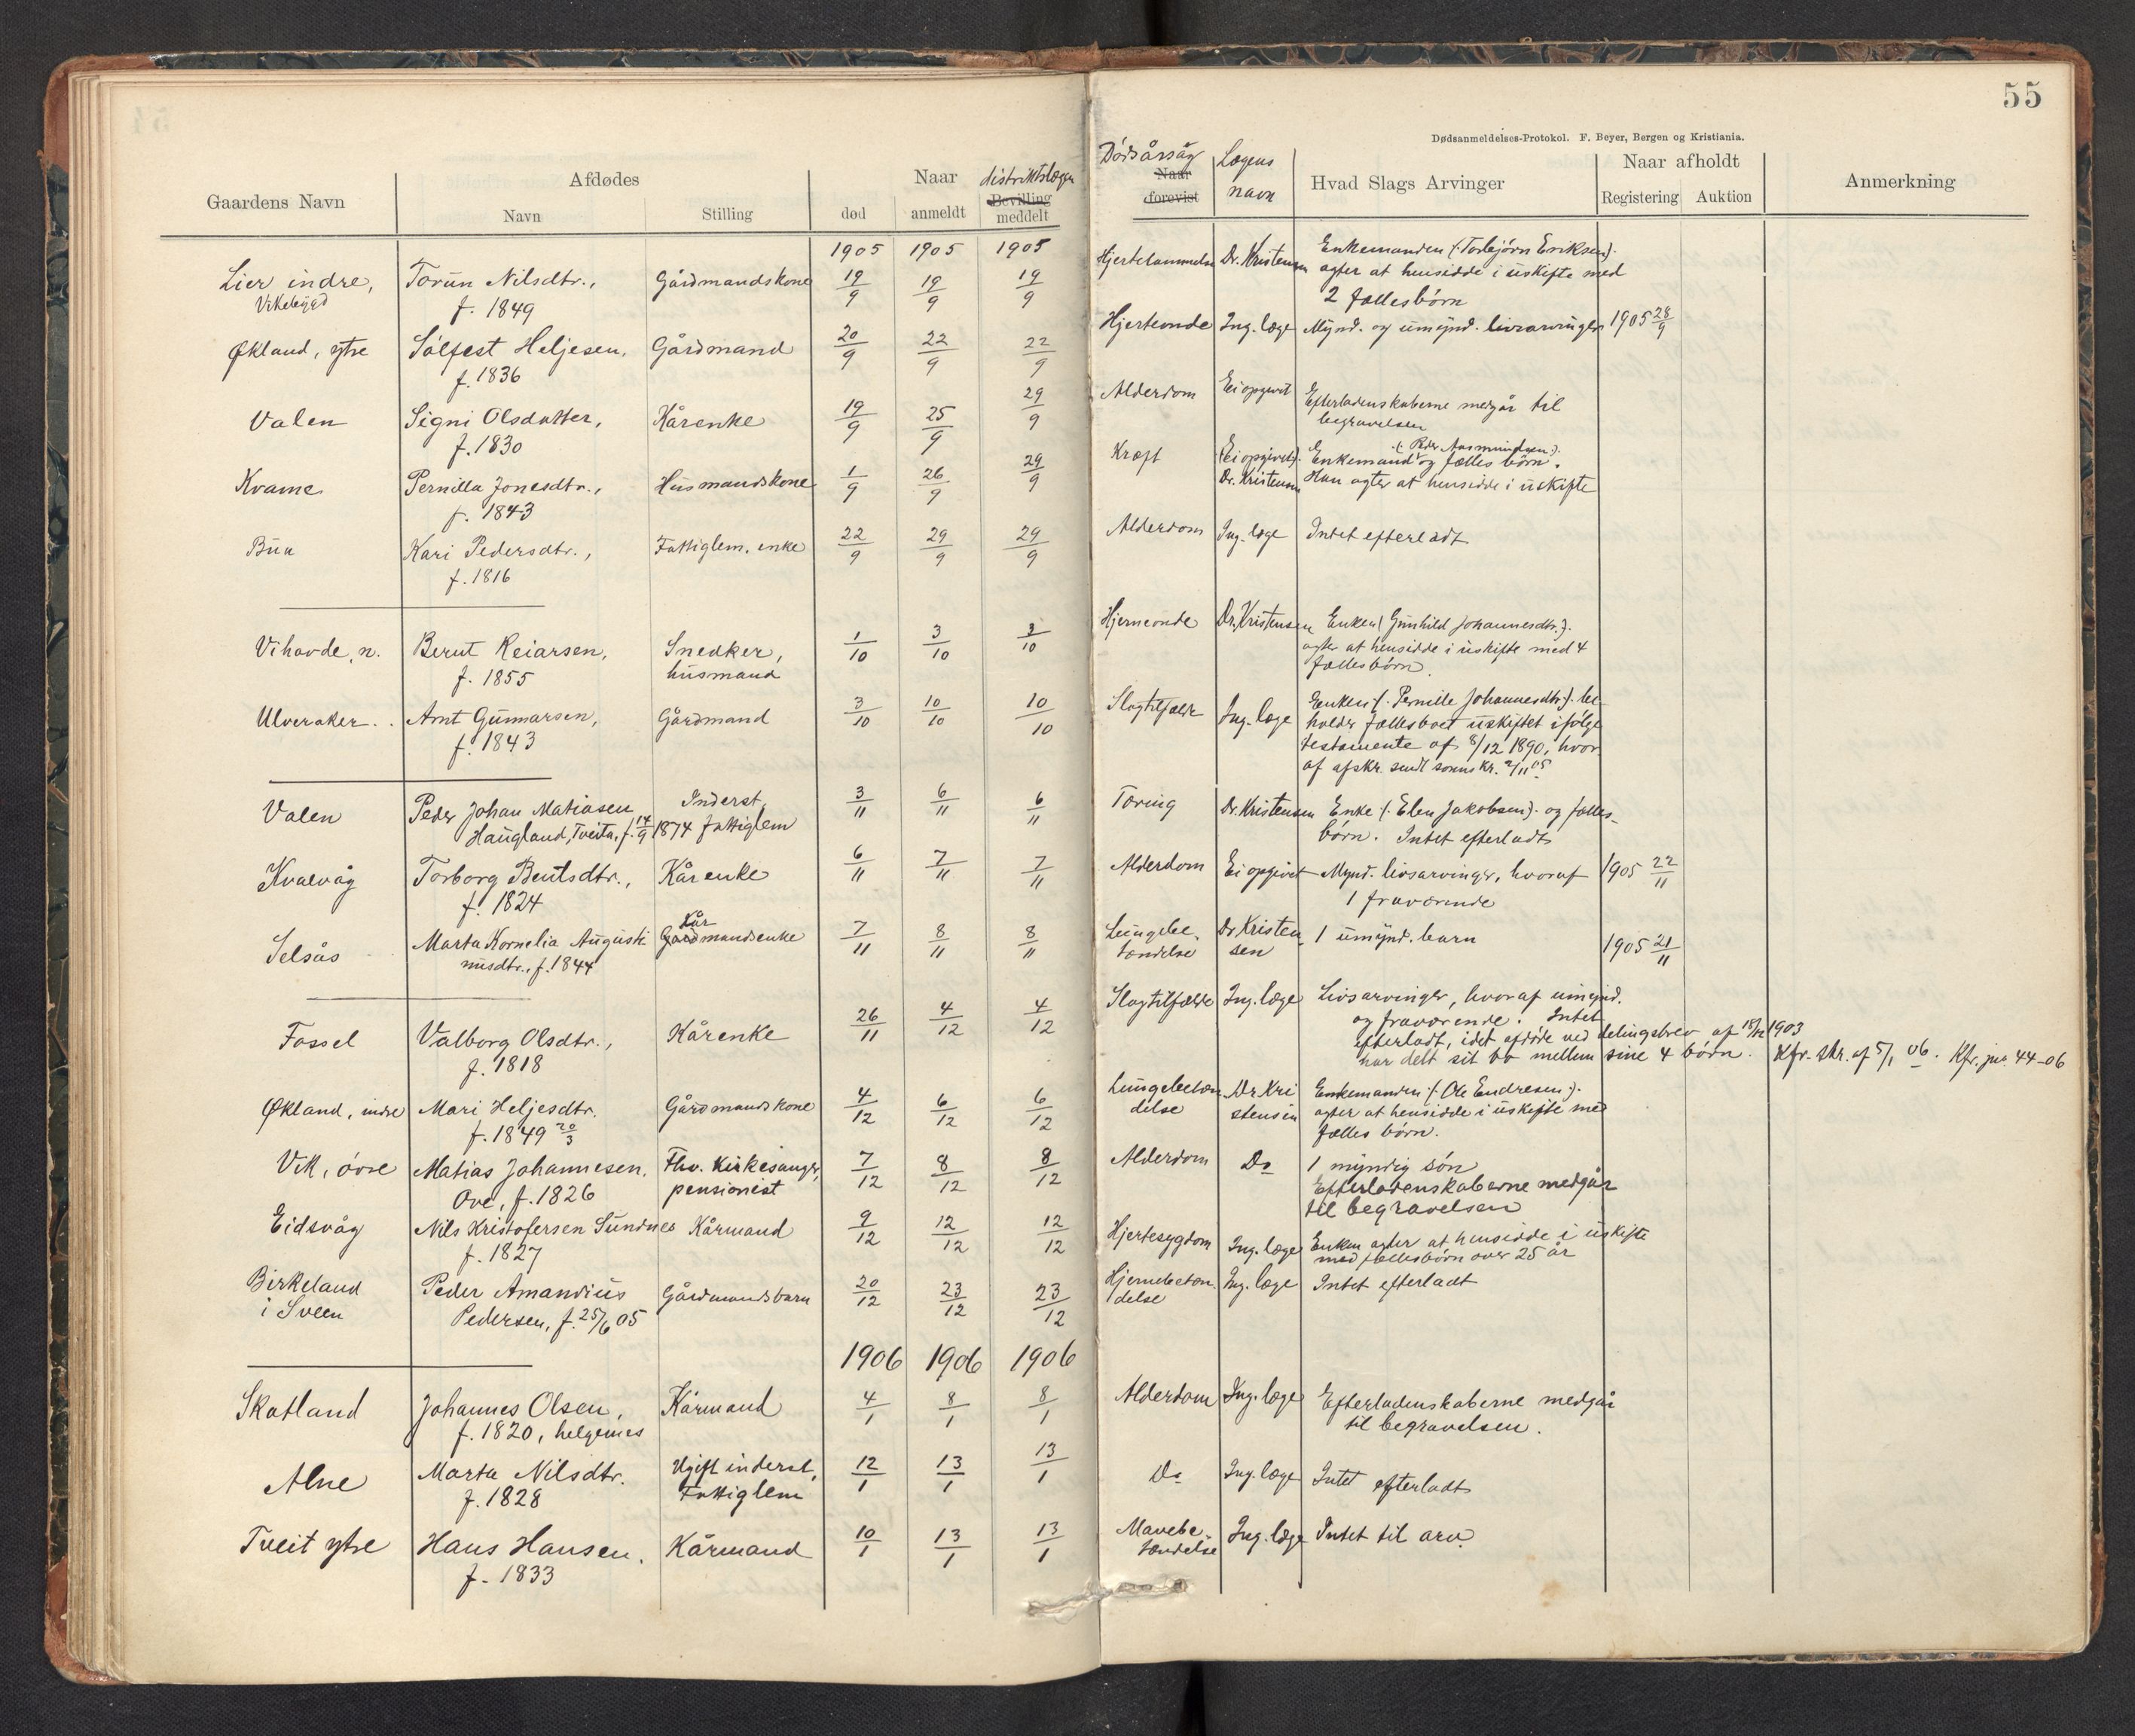 55
Dødsanmeldelses-Protokol. F. Beyer, Bergen og Kristiania.
Gaardens Navn
Afdødes
Navn
Stilling
Naar
død
anmeldt
distriktslægen
Bevilling
meddelt
Dødsårsåg
Naar
forevist
Lægens
navn
Hvad Slags Arvinger
Naar afholdt
Registering
Auktion
Anmerkning
1905 1905 1905
Lier indre, Torun Nilsdtr., Gårdmandskone 19/9 19/9 19/9 Hjertelammelse Dr. Kristensen Enkemanden (: Torbjørn Eriksen :)
Vikebygd f. 1849 agter at hensidde i uskifte med
2 fællesbörn
Økland, ytre Sølfest Heljesen, Gårdmand 20/9 22/9 22/9 Hjerteonde Ing. læge Mynd. og umynd. livsarvinger 1905 28/9
f. 1836
Valen Signi Olsdatter, Kårenke 19/9 25/9 29/9 Alderdom Ei opgivet Efterladenskaberne medgår til
f. 1830 begravelsen
Kvame Pernilla Jonesdtr., Husmandskone 1/9 26/9 29/9 Kræft (Ei opgivet). Enkemand og fælles børn.
(: Peder Aasmundsen :)
f. 1843 Dr. Kristensen Han agter at hensidde i uskifte
Bua Kari Pedersdtr., Fattiglem, enke 22/9 29/9 29/9 Alderdom Ing. læge Intet efterladt
f. 1816
Vihovde, n. Bernt Reiarsen, Snedker, 1/10 3/10 3/10 Hjerneonde Dr. Kristensen Enken (: Gunhild Johannesdtr. :)
f. 1855 husmand agter at hensidde i uskifte med 4
fællesbörn.
Ulveraker. Arnt Gunnarsen, Gårdmand 3/10 10/10 10/10 Slagtilfælde Ing. læge Enken (: Pernille Johannesdtr. :) be-
f. 1843 holder fællesboet uskiftet ifølge
testamente af 8/12 1890, hvor-
af afskr. sendt sorens kr. 2/11 05
Valen Peder Johan Matiasen Inderst, 3/11 6/11 6/11 Tæring Dr. Kristensen Enke (: Elen Jakobsen :) og fælles-
Haugland, Tveita, f. 14/9 1874 fattiglem börn. Intet efterladt
Kvalvåg Torborg Bentsdtr., Kårenke 6/11 7/11 7/11 Alderdom Ei opgivet Mynd. livsarvinger, hvoraf 1905 22/11
f. 1824 1 fraværende
Selsås Marta Kornelia Augusti Kår Gårdmandsenke 7/11 8/11 8/11 Lungebe- Dr Kristen 1 umynd. barn 1905 21/11
nusdtr., f. 1844 tændelse sen
Fossel Valborg Olsdtr., Kårenke 26/11 4/12 4/12 Slagtilfælde Ing. læge Livsarvinger, hvoraf umynd.
f. 1818 og fraværende. Intet
efterladt, idet afdøde ved delingsbrev af 18/12 1903
har delt sit bo mellem sine 4 børn. Kfr. skr. af 5/1 06. Kfr. jnr. 44-06
Økland, indre Mari Heljesdtr. Gårdmandskone 4/12 6/12 6/12 Lungebetæn Dr. Kri Enkemanden (: Ole Endresen :)
f. 1849 20/3 delse stensen agter at hensidde i uskifte med
fælles börn.
Vik, övre Matias Johannesen. Fhv. Kirkesanger, 7/12 8/12 8/12 Alderdom Do 1 myndig sön
Ove, f. 1826 pensionist Efterladenskaberne medgår
til begravelsen
Eidsvåg Nils Kristofersen Sundnes Kårmand 9/12 12/12 12/12 Hjertesygdom Ing. læge Enken agter at hensidde i uskifte
f. 1827 med fællesbörn over 25 år
Birkeland Peder Amandius Gårdmandsbarn 20/12 23/12 23/12 Hjernebetæn Ing. læge Intet efterladt
i Sveen Pedersen, f. 25/6 05 delse
1906 1906 1906
Skatland Johannes Olsen, Kårmand 4/1 8/1 8/1 Alderdom Ing. læge Efterladenskaberne medgår
f. 1820, helgenes til begravelsen.
Alne Marta Nilsdtr. Ugift inderst, 12/1 13/1 13/1 Do Ing. læge Intet efterladt
f. 1828 Fattiglem
Tveit ytre Hans Hansen, Kårmand 10/1 13/1 13/1 Mavebe- Ing. læge Intet til arv.
f. 1833 tændelse